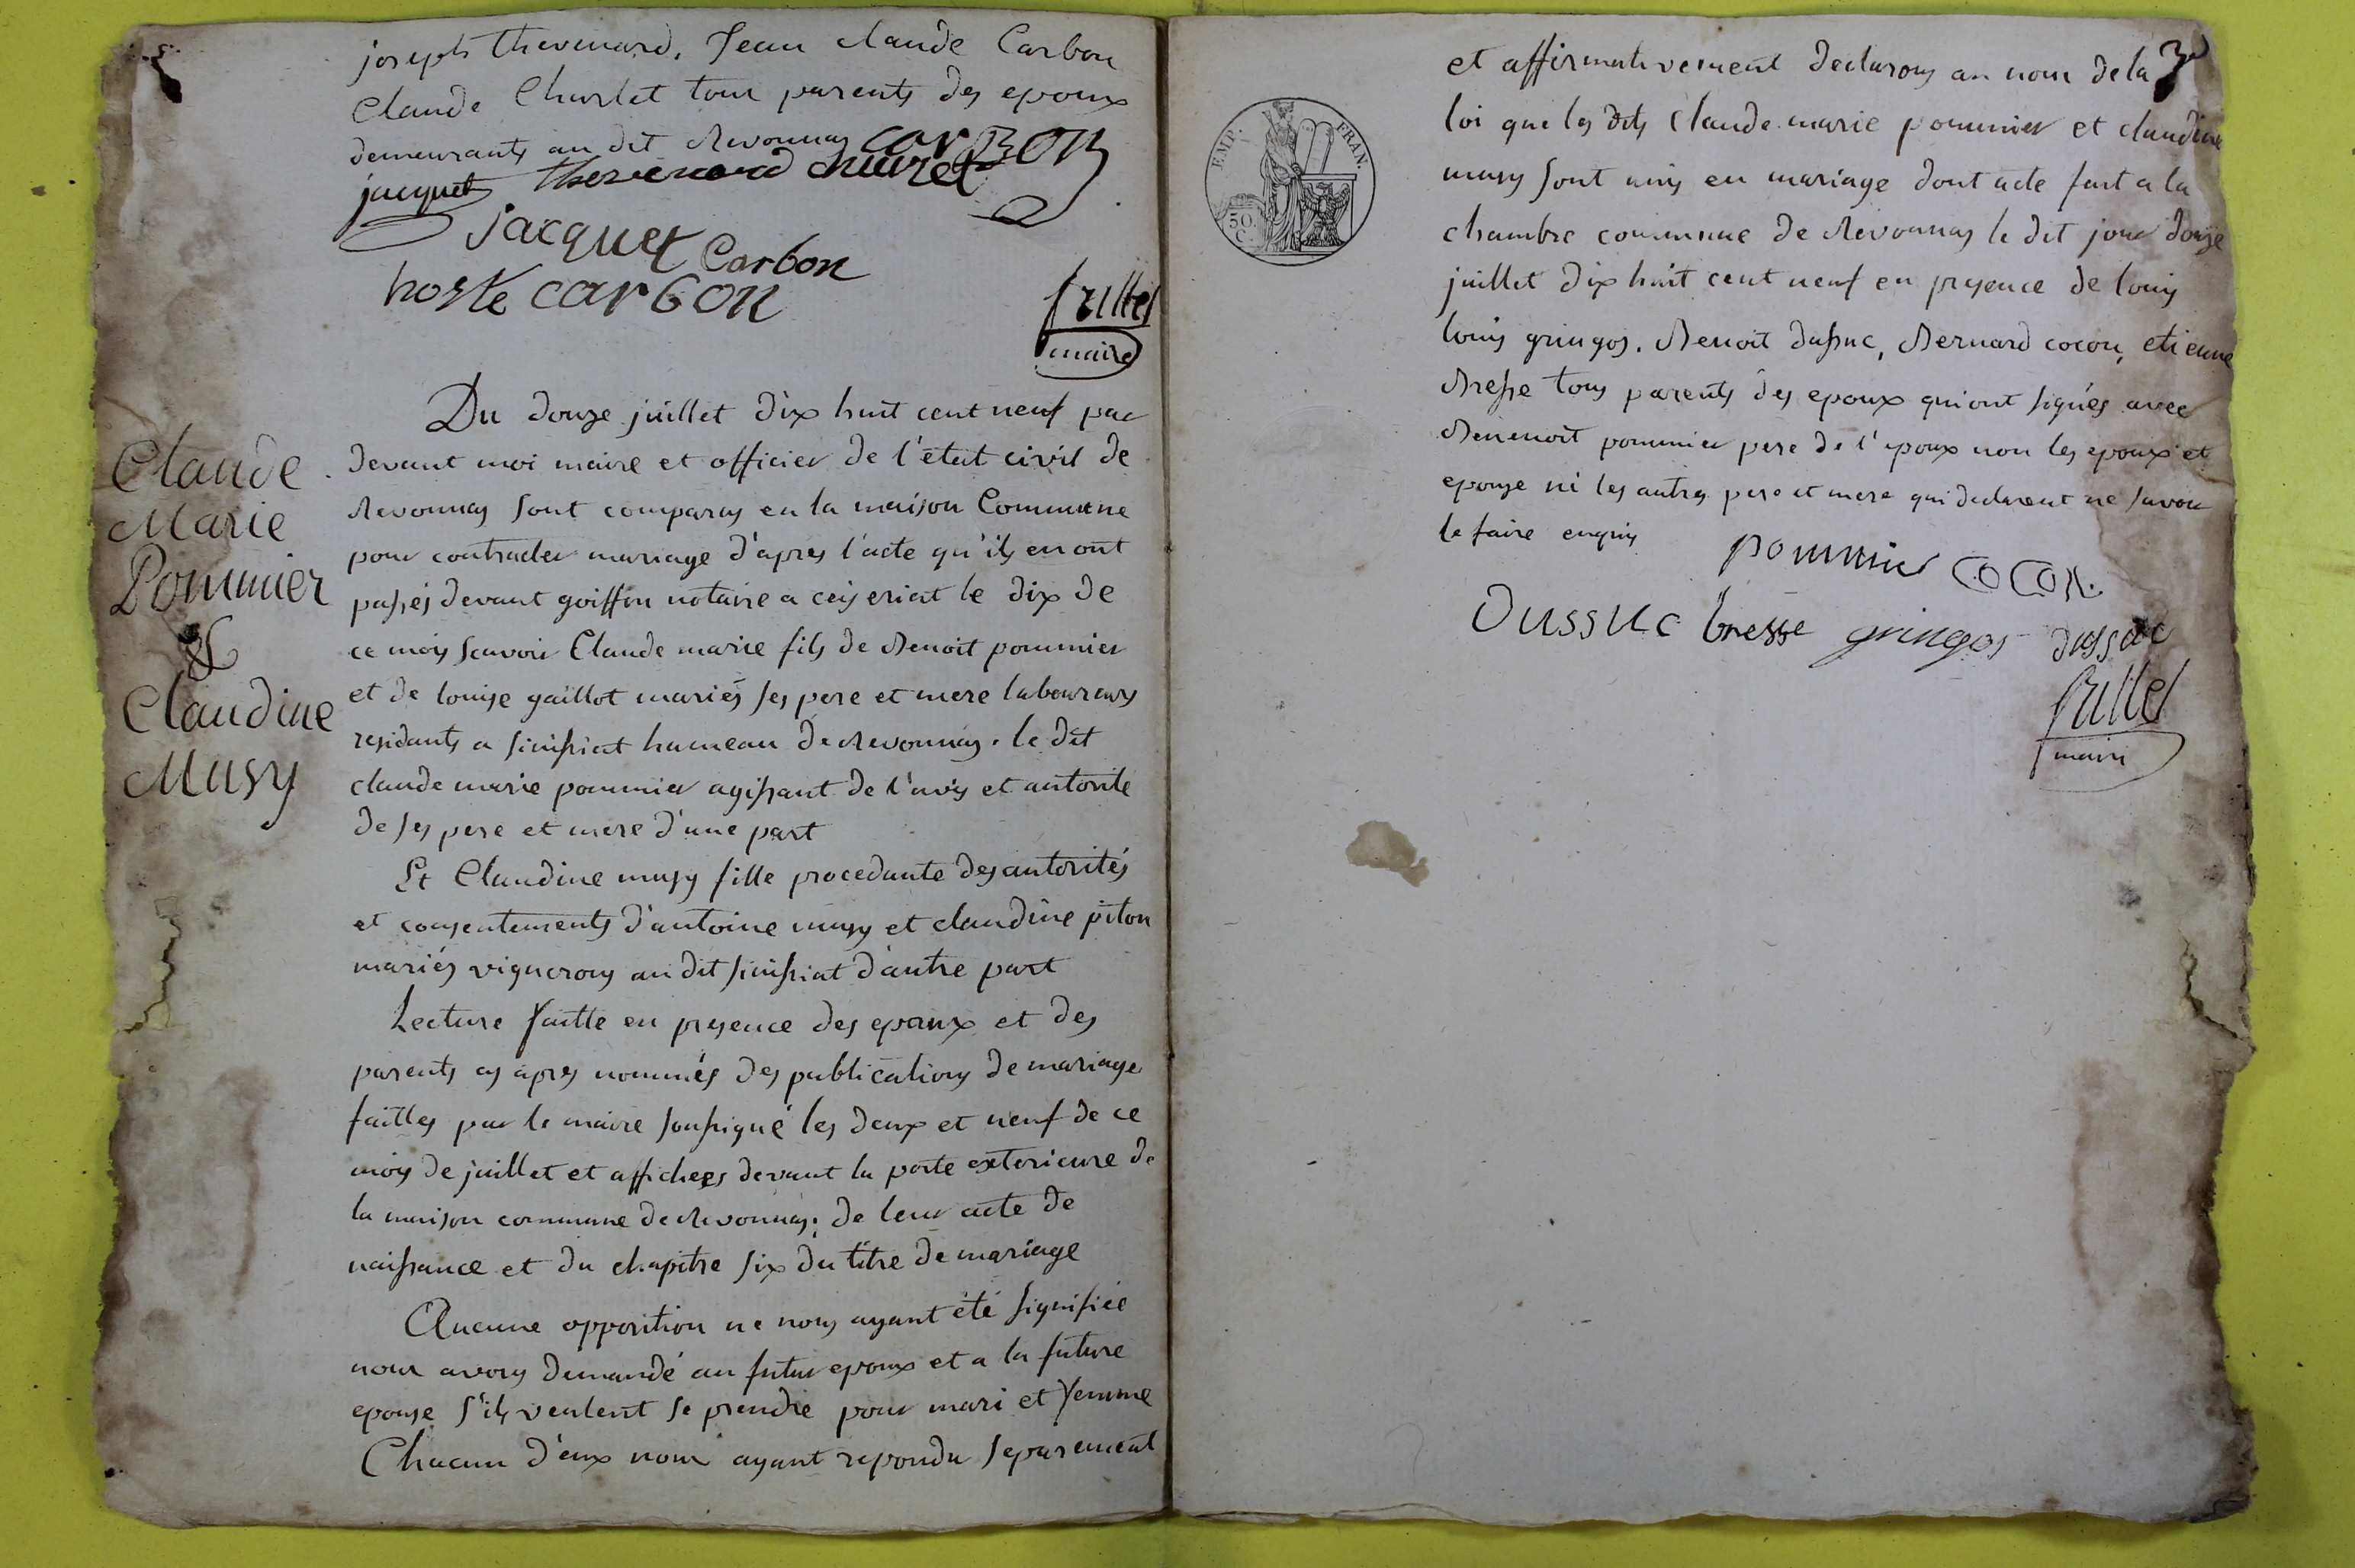 joseph thevenard, Jean claude Carbon
Claude Charlet tous parents des epoux
demeurants au dit Revonnas carBON
jacquet thevenard chevret
jacquet Carbon
hoste carbon
frillet
maire
Du douze juillet dix huit cent neuf par
devant moi maire et officier de l'état civil de
Revonnas sont comparus en la maison Commune
pour contracter mariage d'apres l'acte qu'ils en ont
passés devant goiffon notaire a ceiseriat le dix de
ce mois scavoir Claude marie fils de Benoit pommier
et de louise gaillot mariés ses pere et mere laboureurs
residants a simssiat hameau de Revonnas. le dit
claude marie pommier agissant de l'avis et autorite
de ses pere et mere d'une part
Et Claudine musy fille procedante des autorités
et consentements d'antoine musy et claudine piton
mariés vignerons au dit simssiat d'autre part
Lecture faitte en presence des epoux et des
parents cy apres nommés des publications de mariage
faittes par le maire soussigné les deux et neuf de ce
mois de juillet et affichees devant la porte exterieure de
la maison commune de Revonnas; de leur acte de
naissance et du chapitre six du titre de mariage
Aucune opposition ne nous ayant été signifiée
nous avons demandé au futur epoux et a la future
epouse s'ils veulent se prendre pour mari et femme
Chacun d'eux nous ayant repondu separement
Claude
Marie
Pommier
&
Claudine
Musy
et affirmativement declarons au nom de la
loi que les dits Claude marie pommier et claudine
musy sont unis en mariage dont acte fait a la
chambre commune de Revonnas le dit jour douze
juillet dix huit cent neuf en presence de louis
louis gringos, Benoit dussuc, Bernard cocon, etienne
Bresse tous parents des epoux qui ont signés avec
Benenoit pommier pere de l'epoux non les epoux et
epouse ni les autres pere et mere qui declarent ne savoir
le faire enquis
pommier COCON.
Dussuc bresse gringos dussuc
frillet
maire
EMP. FRAN.
50. C.